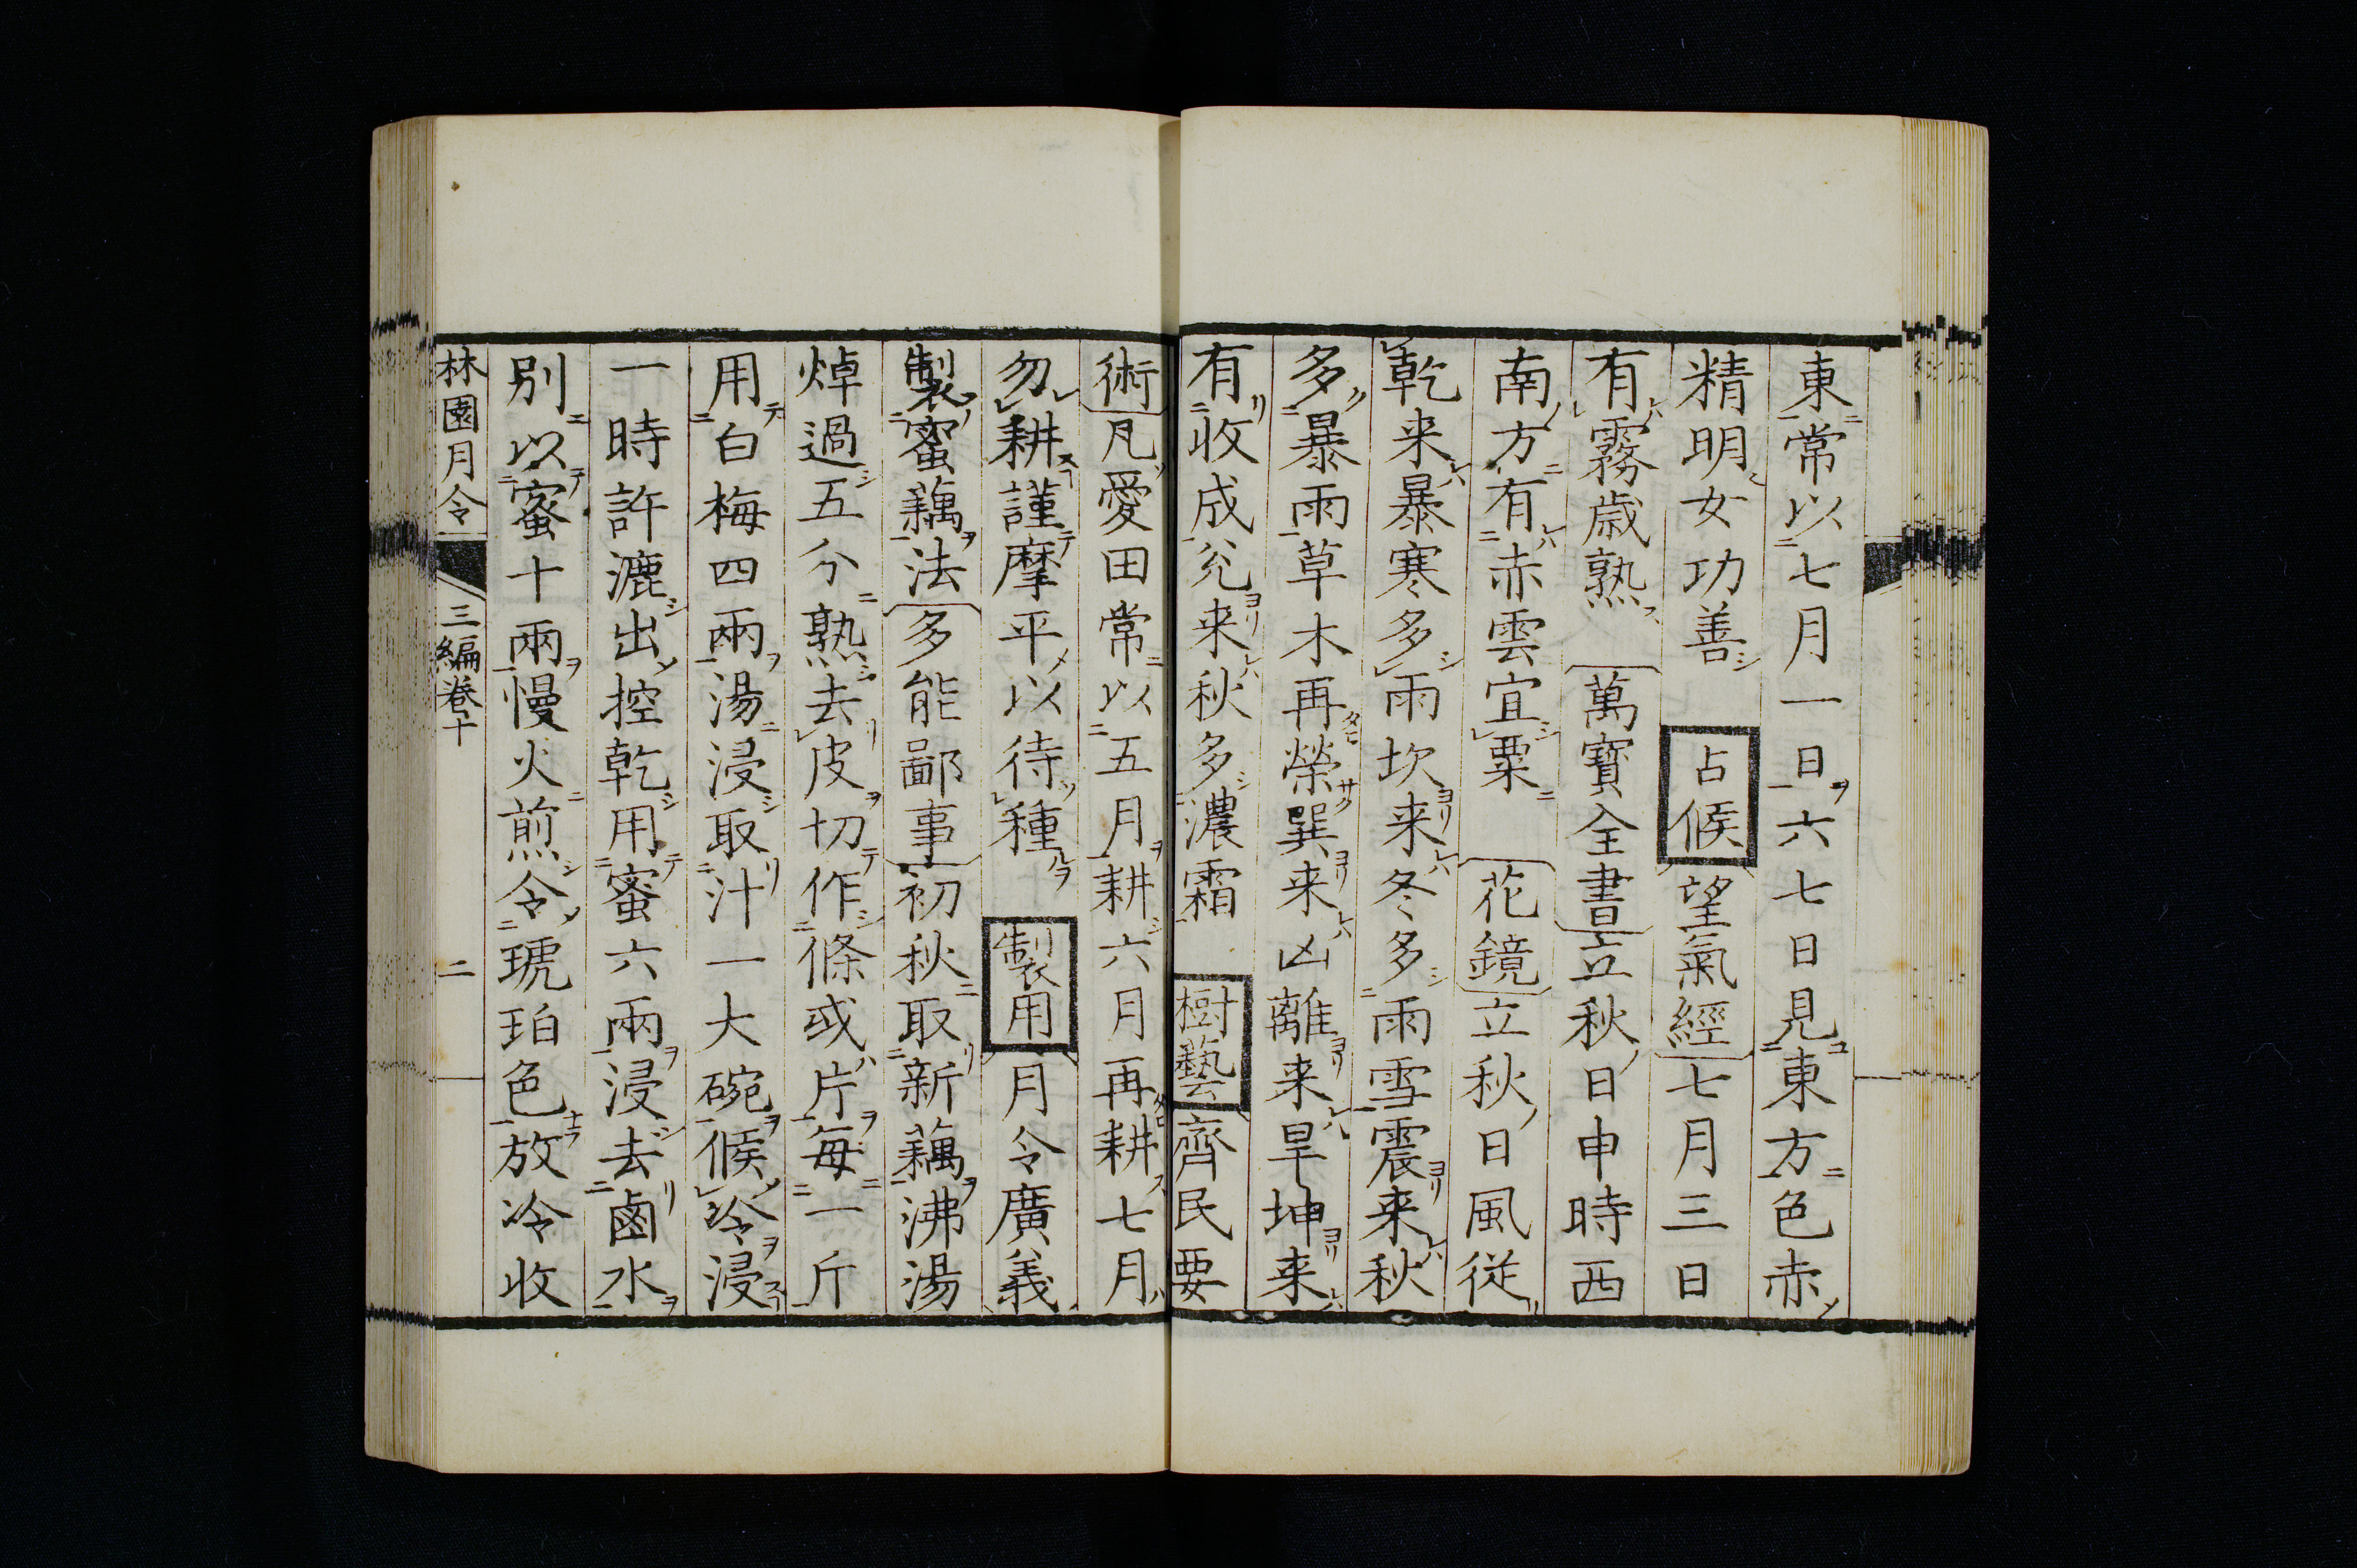 東常以七月一日六七日見東方色赤
精明女功善 占候 望氣經七月三日
有霧歳熟 萬寶全書立秋日申時西
南方有赤雲宜粟 花鏡立秋日風従
乾来暴寒多雨坎来冬多雨雪震来秋
多暴雨草木再榮巽来凶離来旱坤来
有收成兊来秋多濃霜 樹藝 齊民要
術凡愛田常以五月耕六月再耕七月
勿耕謹摩平以待種 製用 月令廣義
製蜜藕法多能鄙事初秋取新藕沸湯
焯過五分熟去皮切作條或片毎一斤
用白梅四兩湯浸取汁一大碗候冷浸
一時許漉出控乾用蜜六兩浸去鹵水
別以蜜十兩慢火煎令琥珀色放冷收
林園月令 三編卷十 二